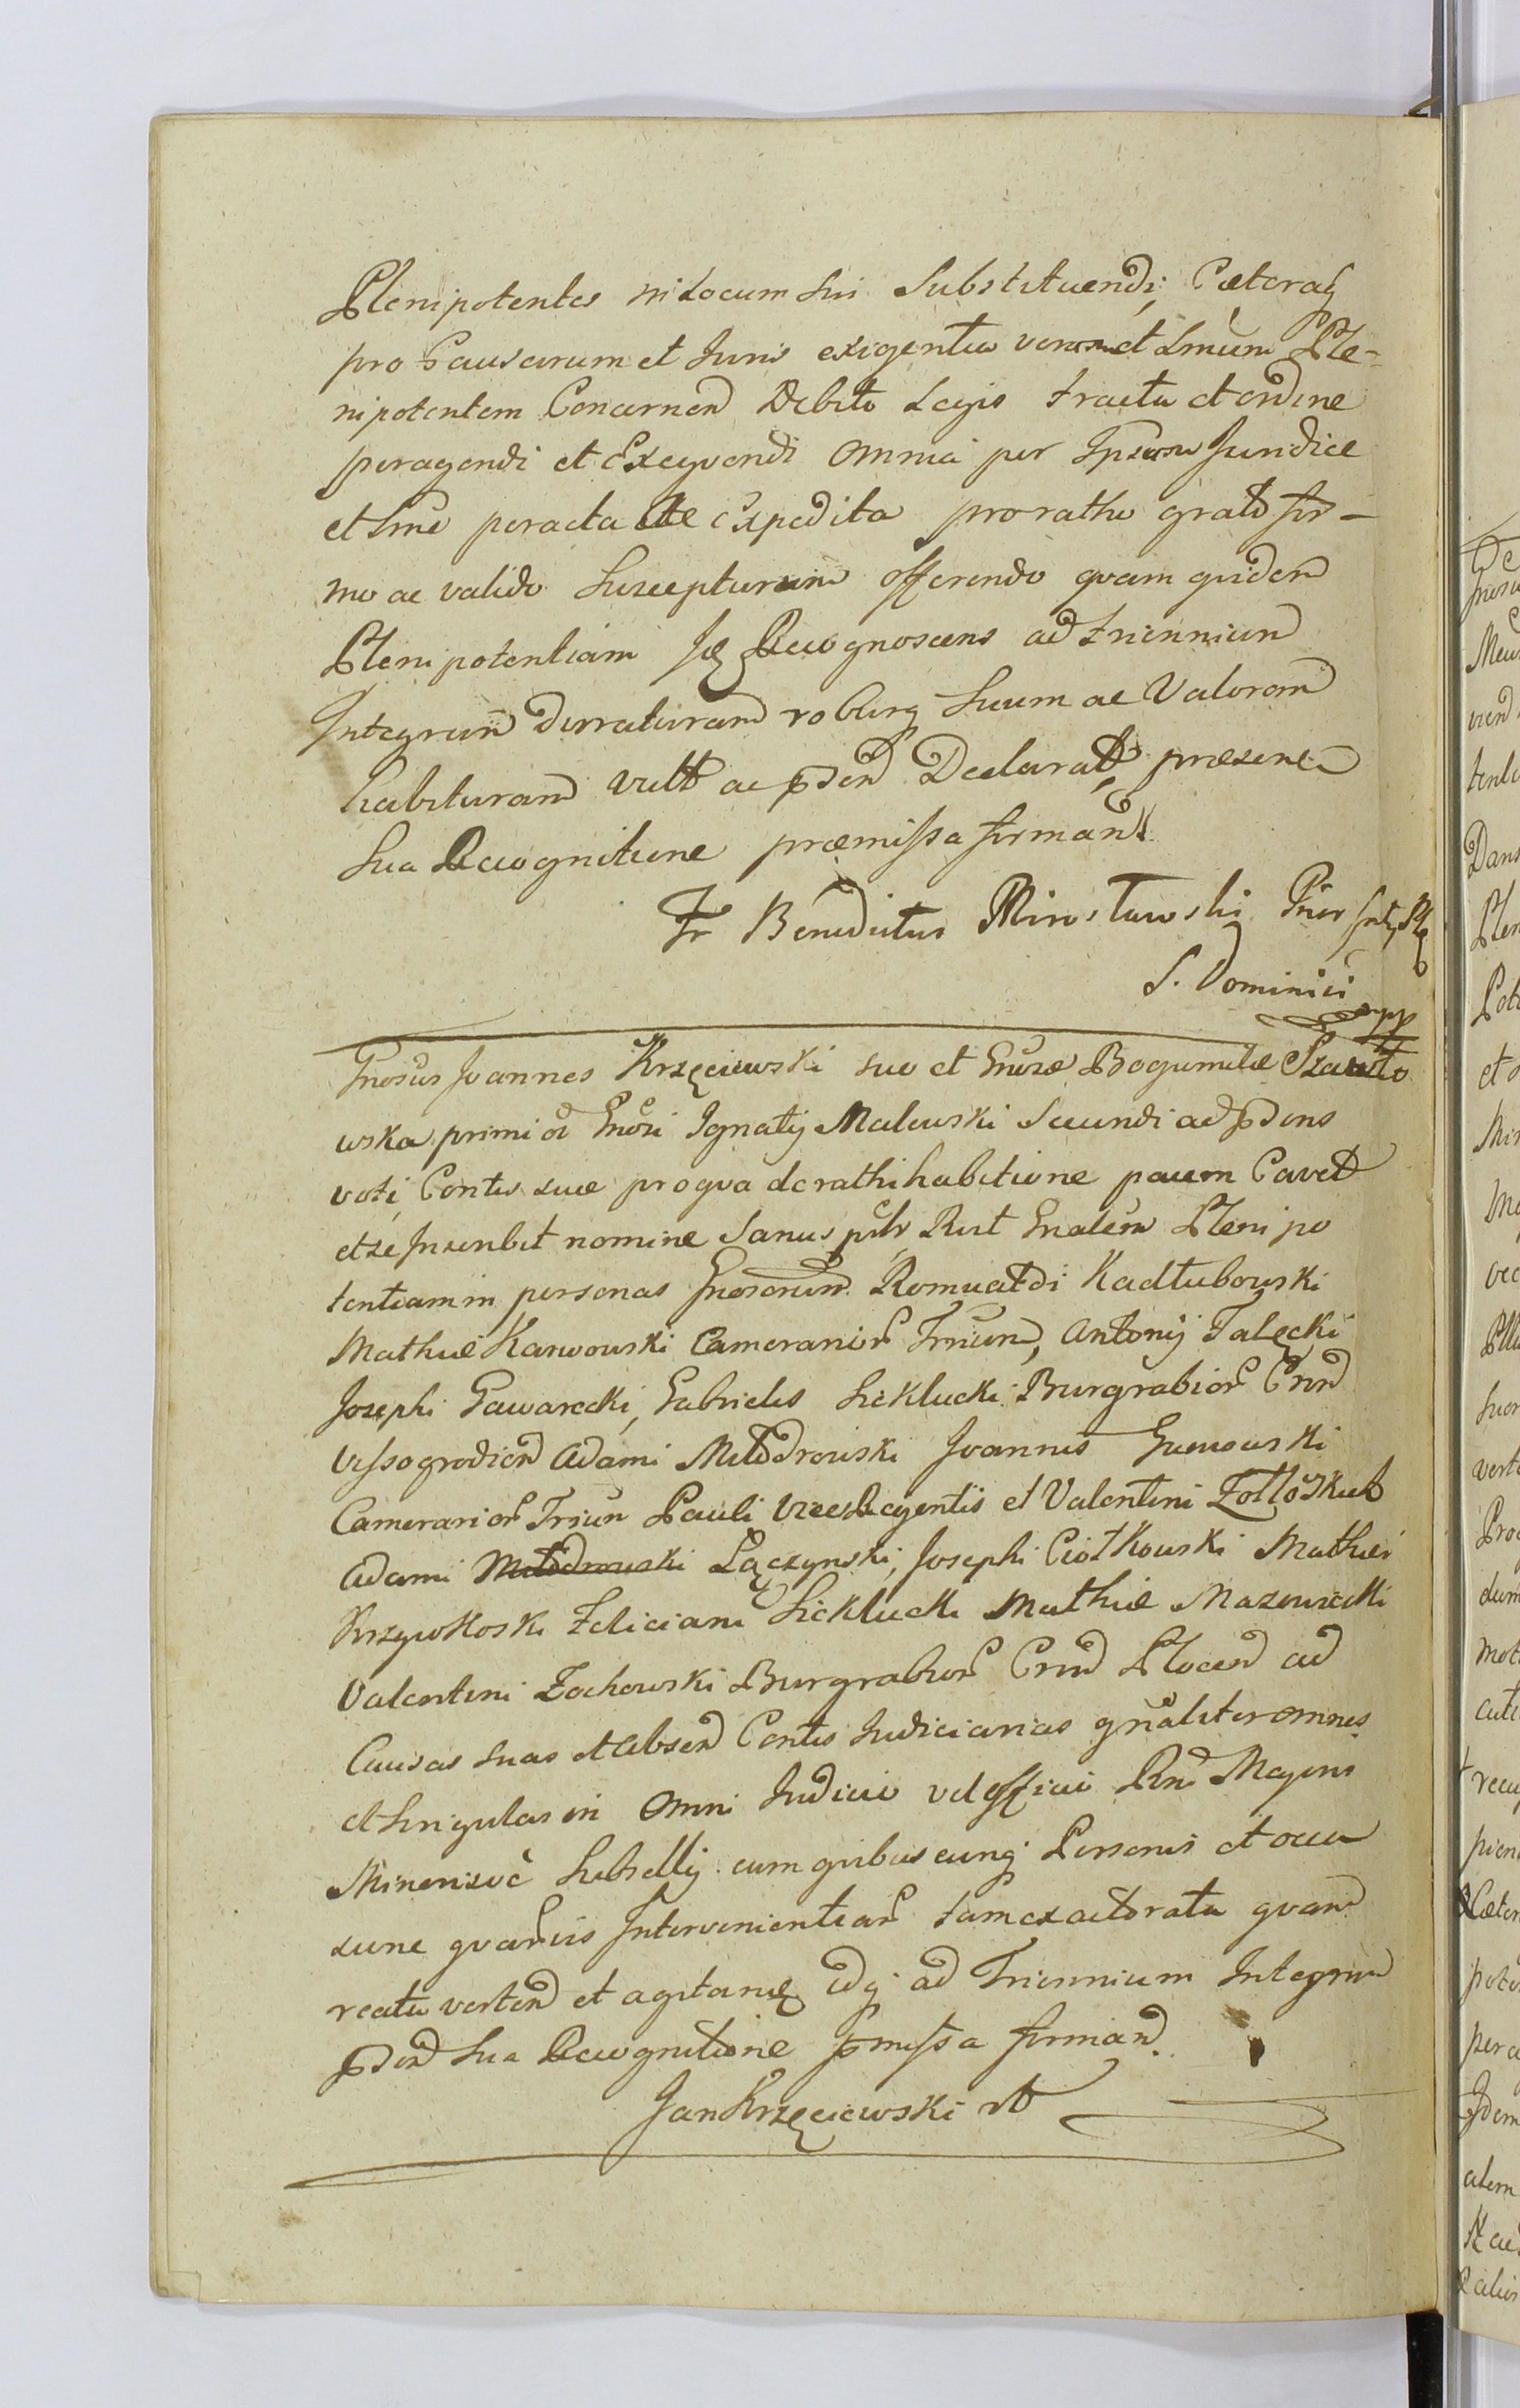 Plenipotentes in Locum Sui Substituendi, Cæteraq
pro Causarum et Juris exigentia verum et Lmum Ple-
nipotentem Concernen Debito Legis tractu et ordine
peragendi et Exeqvendi omnia per Ipsum Juridice
et Lme peracta Expedita pro ratho grato fir-
mo ac valido Suscepturum offerendo qvam qvidem
Plenipotentiam Recognoscens ad triennium
Integrum Durraturam roburq Suum ac Valorem
habituram vult ac Declarat, præsenti
Sua Recognitione præmissa firman
Fr Benedictus Mirosławski Prior
S. Dominici mpp
Gnosus Joannes Krzęciewski suo et Gnosæ Bogumilæ Szawło
wska primi Gnosi Ignatij Malewski Secundi ad
voti, Contis suæ pro qva de rathihabitione Cavet
et se Inscribit nomine Sanus Rect Gnalem Plenipo
tentiam in personas Gnosorum Romualdi Kadłubowski
Mathiæ Karwowski Camerarior Trium, Antonij Talęcki
Josephi Gawarecki, Gabrielis Sieklucki Burgrabior Crn
Vissogrodien Adami Młodrowski Joannis
Camerarior Trium Pauli ViceRegentis et Valentini Zołłoskub
Adami Młodrowski Łączynski, Josephi Ciołkowski Mathiei
Krzywkoski Feliciani Sieklucki Mathiæ Mazowiecki
Valentini Zochowski Burgrabior Crn Plocen ad
Causas suas et absen Contis Judiciarias gnaliter omnes
et Singulas in omni Judicio vel officio Rni Majoris
Minorisve Subsellij cum qvibuscunq Personis et occa
sione qvarvis Intervenientiar tam ex actoratu qvam
reatu verten et agitan idq ad Triennium Integrum
Sua Recognitione pmissa firman.
Jan Krzęciewski